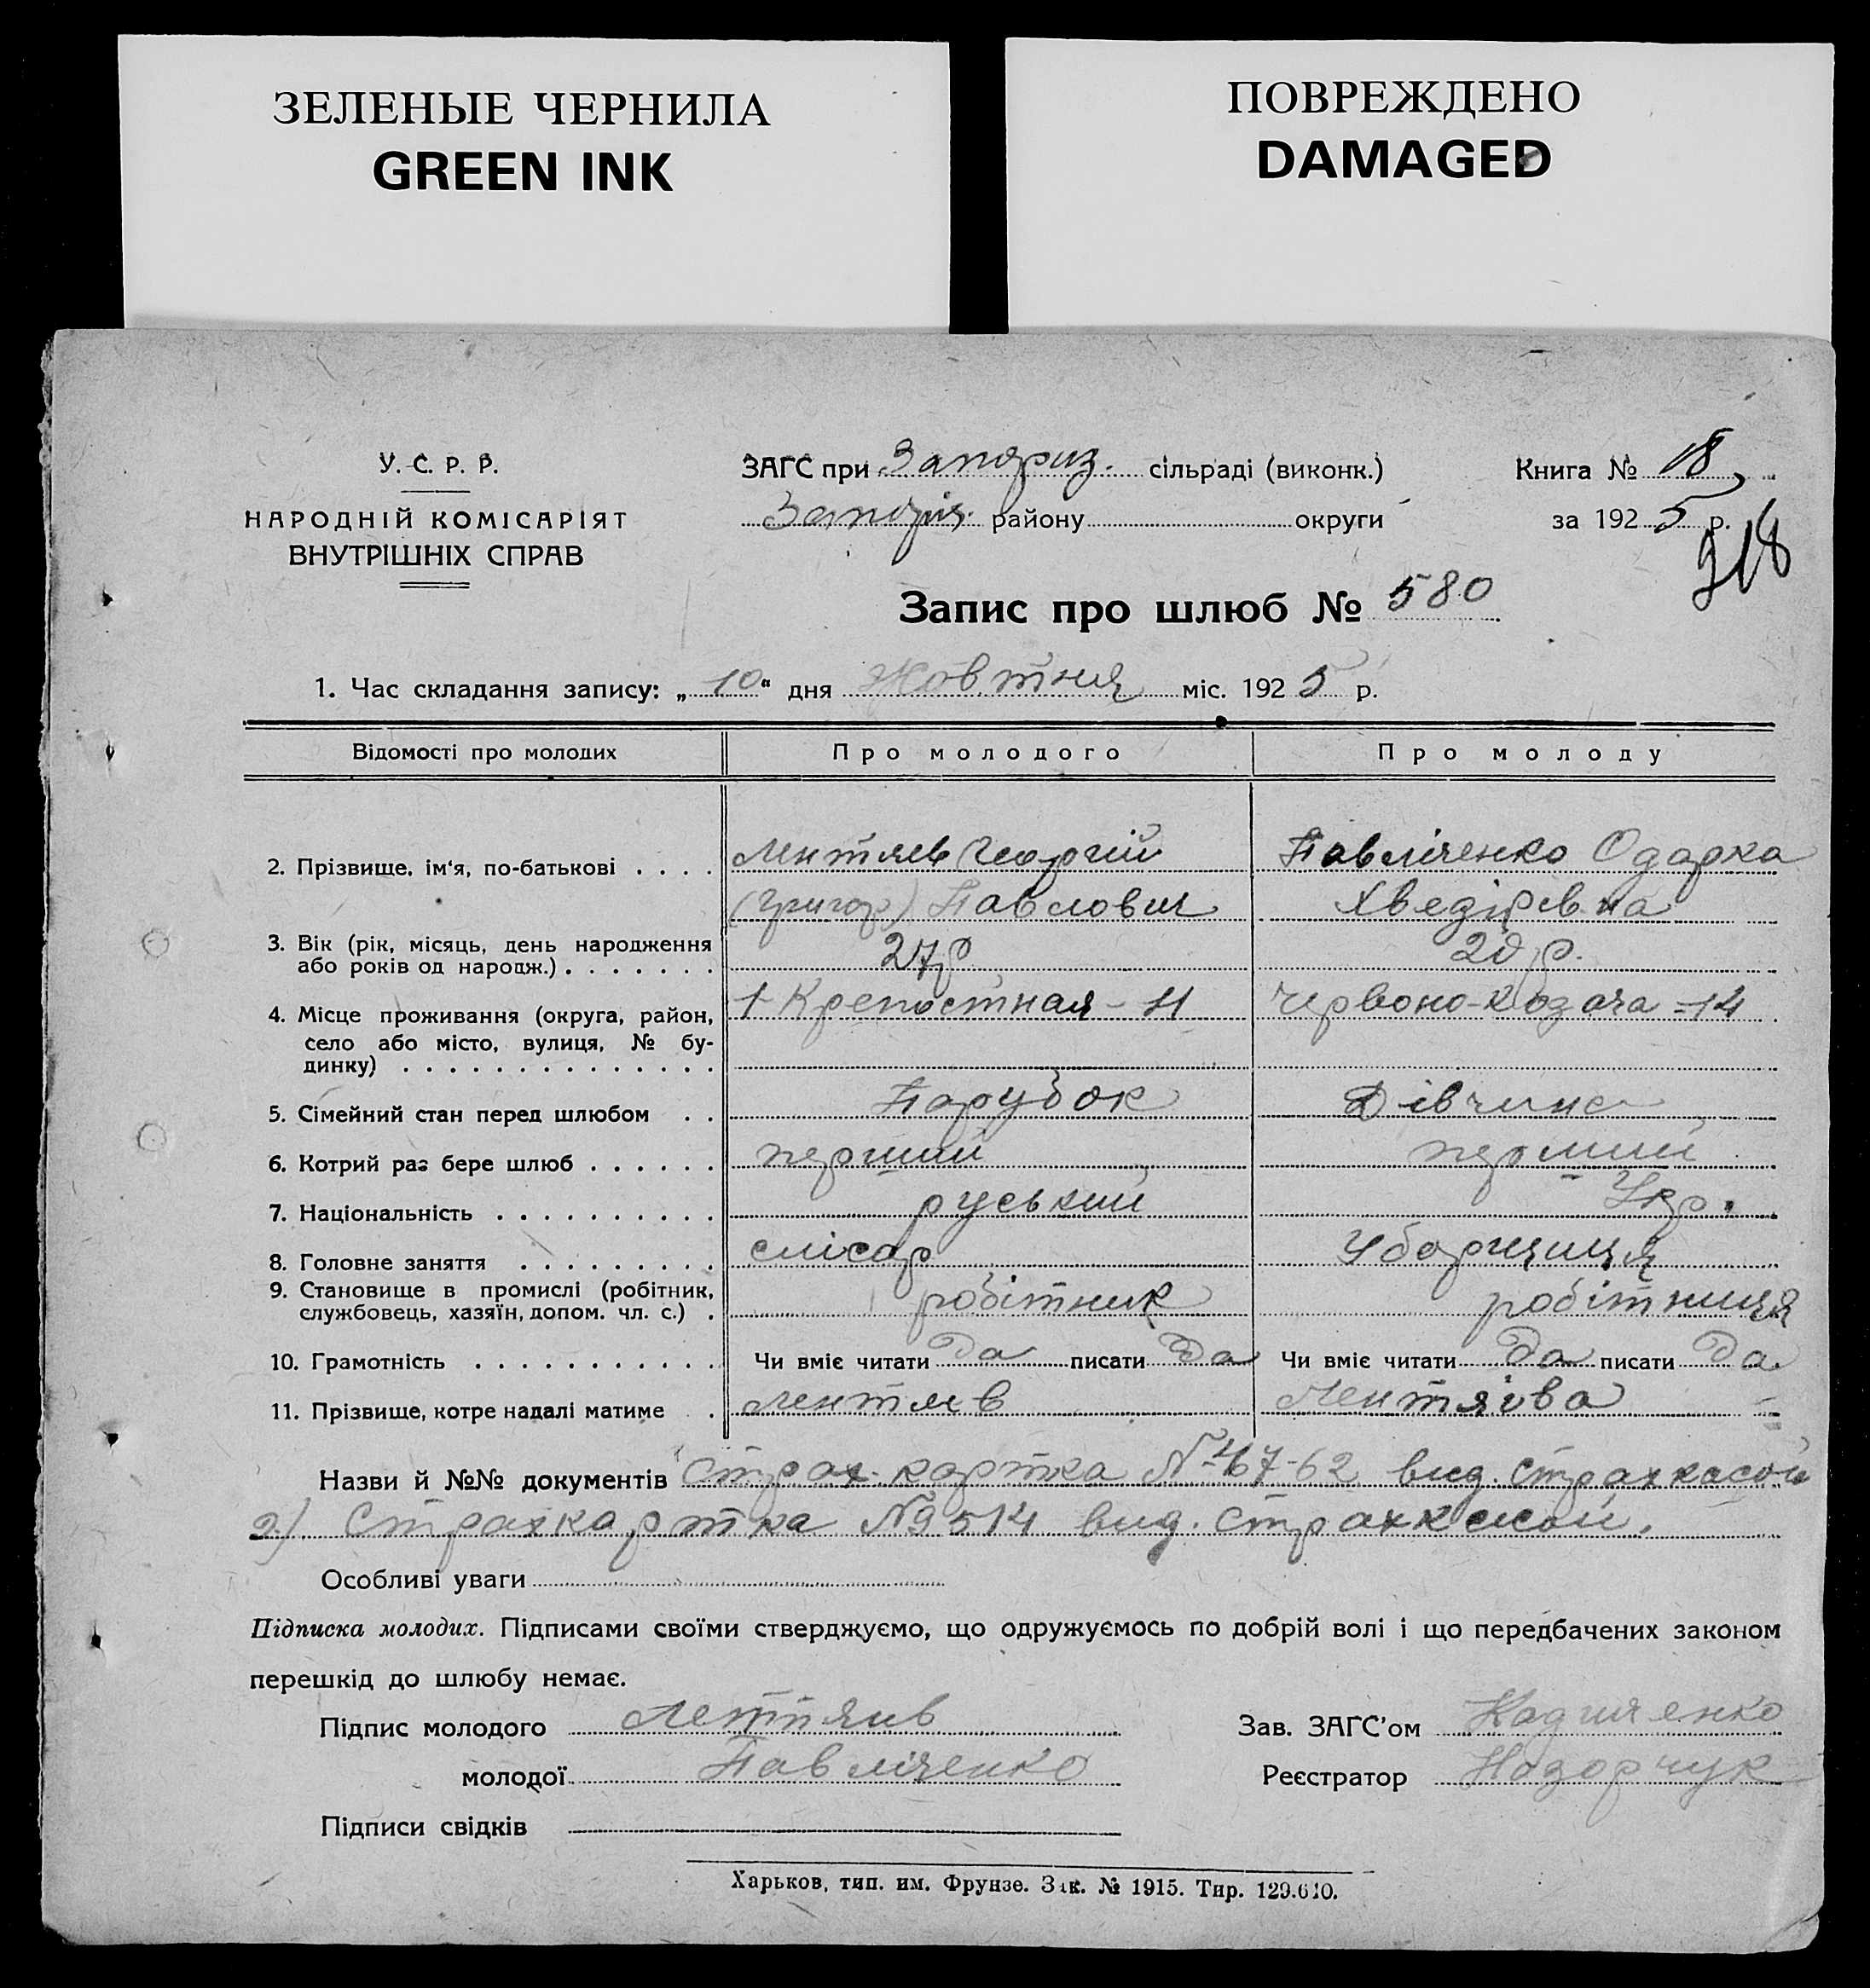 ЗЕЛЕНЫЕ ЧЕРНИЛА
GREEN INK
ПОВРЕЖДЕНО
DAMAGED
У. С. Р. Р.
НАРОДНІЙ КОМІСАРІЯТ
ВНУТРІШНІХ СПРАВ
ЗАГС при Запориз. сільраді (виконк.)
Запоріз. району округи
Книга № 18
за 1925 р.
318
Запис про шлюб № 580
1. Час складання запису: „10“ дня Жовтня міс. 1925 р.
Відомості про молодих Про молодого Про молоду
2. Прізвище, ім‘я, по-батькові . . . . Лентяев Георгій Павліченко Одарка
(Григор) Павлович Хведірівна
3. Вік (рік, місяць, день народження
або років од народж.) . . . . . . . 27 р 20 р.
4. Місце проживання (округа, район, 1 Крепостная - 11 Червоно-Козача - 14
село або місто, вулиця, № бу-
динку) . . . . . . . . . . . . . .
5. Сімейний стан перед шлюбом . . Парубок Дівчина
6. Котрий раз бере шлюб . . . . . . перший перший
7. Національність . . . . . . . . . . руський Укр.
8. Головне заняття . . . . . . . . . слісар Уборщиця
9. Становище в промислі (робітник,
службовець, хазяїн, допом. чл. с.) . робітник робітниця
10. Грамотність . . . . . . . . . . . Чи вміє читати Да писати Да Чи вміє читати Да писати Да
11. Прізвище, котре надалі матиме . Лентяев Лентяіва
Назви й №№ документів Страх. картка № 467-62 вид. страхкасой
2) Страхкартка № 9514 вид. Страхкасой.
Особливі уваги
Підписка молодих. Підписами своїми стверджуємо, що одружуємось по добрій волі і що передбачених законом
перешкід до шлюбу немає.
Підпис молодого Зав. ЗАГС’ом
молодої Павліченко Реєстратор Назарчук
Підписи свідків
Харьков, тип. им. Фрунзе. Зак. № 1915. Тир. 129.610.